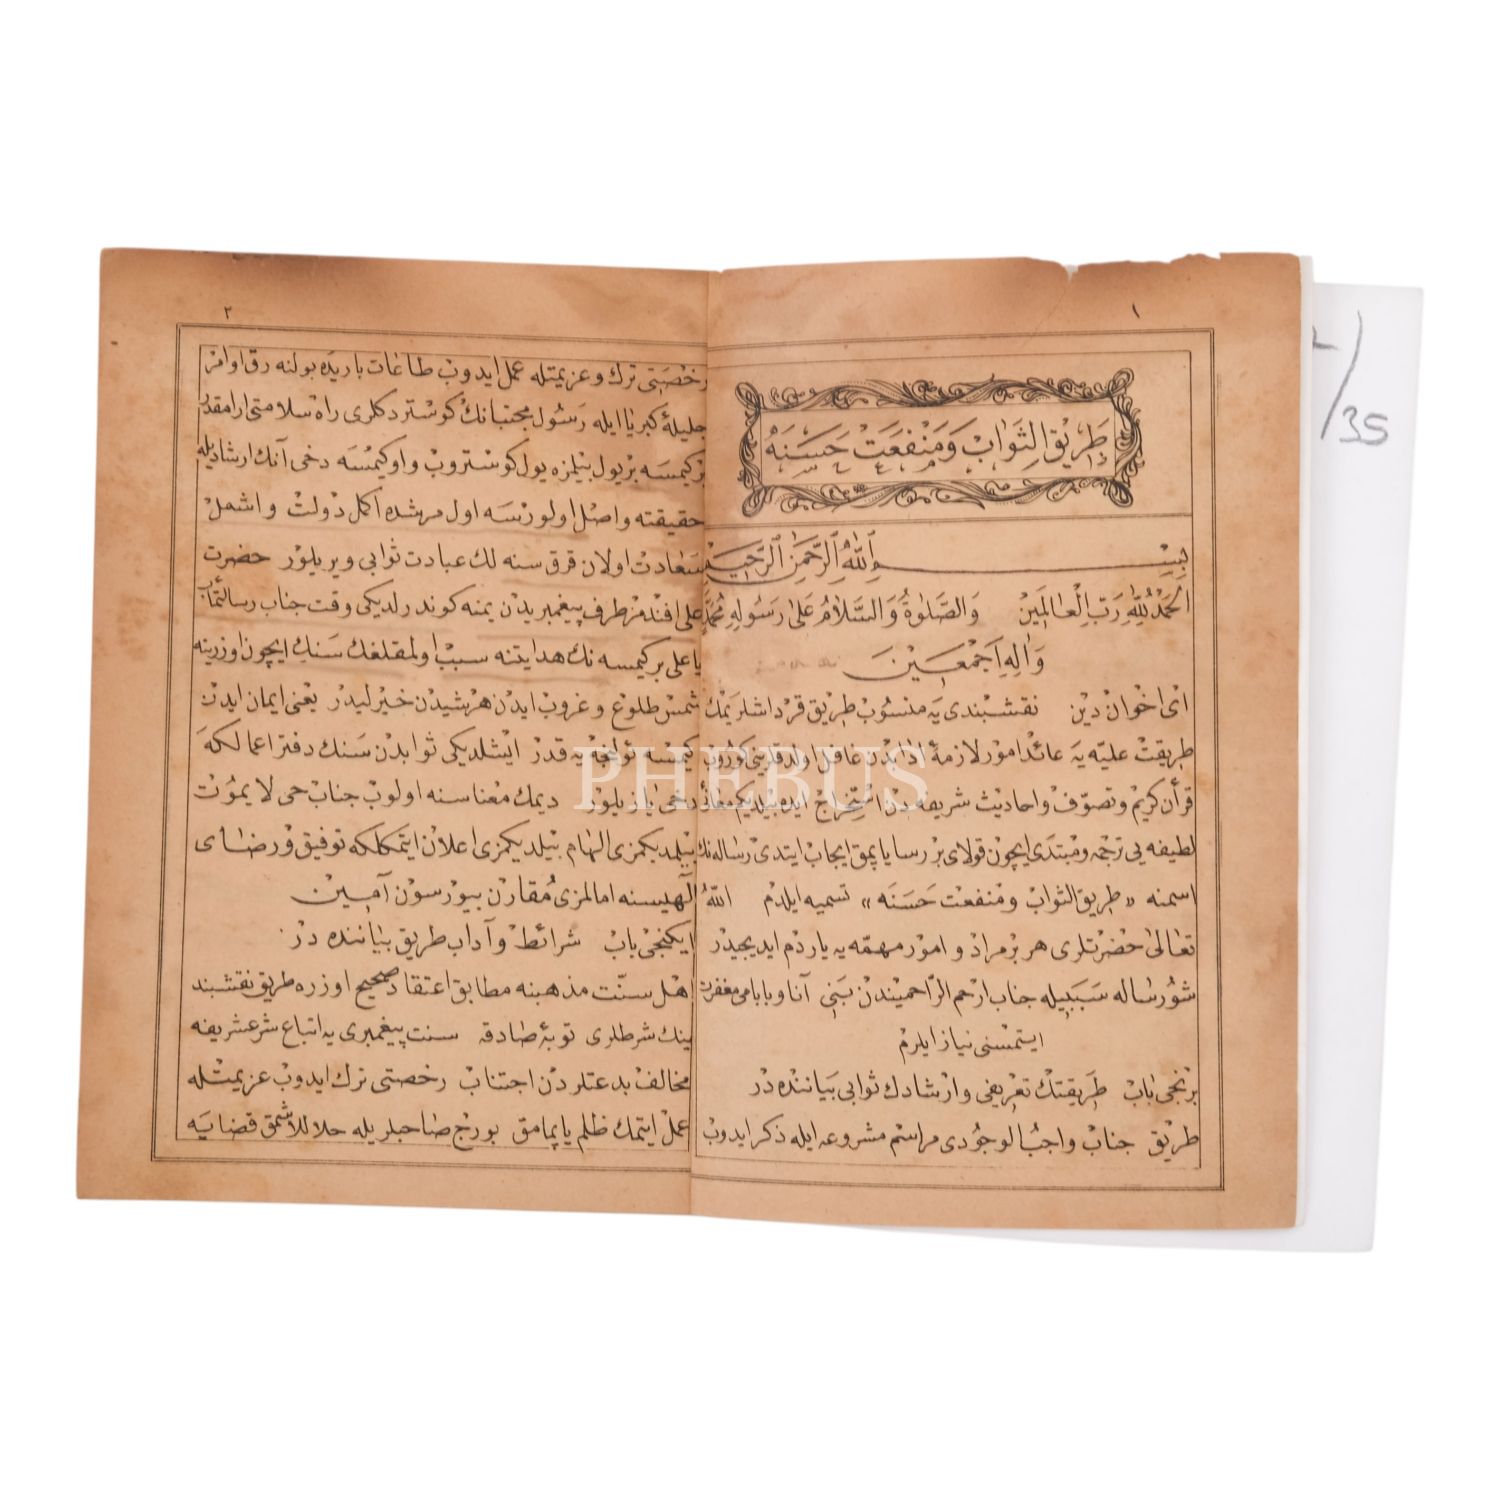 ١
طَرِيقِ الثَوَابْ وَمَنْفَعَتْ حَسَنَهْ
بِسْمِ اللهِ الرَّحْمَنِ الرَّحِيمِ
اَلْحَمْدُ لِلّٰهِ رَبِّ الْعَالَمِينْ وَالصَّلَوةُ وَالسَّلَامُ عَلَى رَسُولِهِ مُحَمَّدٍ
وَالِهِ اَجْمَعِينَ
اى اخوان دين نقشبندى يه منسوب طريق قرداشلريمك
طريقت عليّه يه عائد امور لازمۀ ادابدن غافل اولدقلرينى كوروب
قرآن كريم وتصوّف واحاديث شريفه دن استخراج ايده بيلديكم
لطيفه يى ترجمه ومبتدى ايچون قولاى بر رسا يا پمق ايجاب ايتدى رساله نك
اسمنه «طريق الثواب ومنفعت حَسَنَه» تسميه ايلدم اللهُ
تعالى حضرتلرى هر بر مراد و امور مهمّه يه ياردم ايديجيدر
شو رساله سببيله جناب ارحم الرّاحميندن بنى آنا وبابامى مغفرت
ايتمسنى نياز ايلرم
برنجى باب طريقتك تعريفى وارشادك ثوابى بياننده در
طريق جناب واجب الوجودى مراسم مشروعه ايله ذكر ايدوب
٢
رخصتى ترك وعزيمتله عمل ايدوب طاعات باريده بولنه رق اوامر
جليلۀ كبريا ايله رسول مجتبانك كوستردكلرى راه سلامتى ارامقدر
بر كيمسه بر يول بيلمزه يول كوستروب واو كيمسه دخى آنك ارشاديله
حقيقته واصل اولورسه اول مرشده اكمل دولت واشمل
سعادت اولان قرق سنه لك عبادت ثوابى ويريلور حضرت
على افندمز طرف پيغمبريدن يمنه كوندرلديكى وقت جناب رسالتمآب
يا على بر كيمسه نك هدايتنه سبب اولمقلغك سنك ايچون اوزرينه
شمس طلوع وغروب ايدن هر شيدن خيرليدر يعنى ايمان ايدن
كيمسه نه قدر ايشلديكى ثوابدن سنك دفتر اعمالكه
دخى يازيلور ديمك معناسنه اولوب جناب حى لا يموت
بيلمديكمزى الهام بيلديكمزى اعلان ايتمكلكه توفيق ورضاى
آلهيسنه امالمزى مقارن بيورسون آمين
ايكنجى باب شرائط وآداب طريق بياننده در
اهل سنّت مذهبنه مطابق اعتقاد صحيح اوزره طريق نقشبند
ينك شرطلرى توبۀ صادقه سنت پيغمبرى يه اتباع شرع شريفه
مخالف بدعتلردن اجتناب رخصتى ترك ايدوب عزيمتله
عمل ايتمك ظلم ياپمامق بورج صاحبلريله حلاللاشمق قضايه
PHEBUS
/35